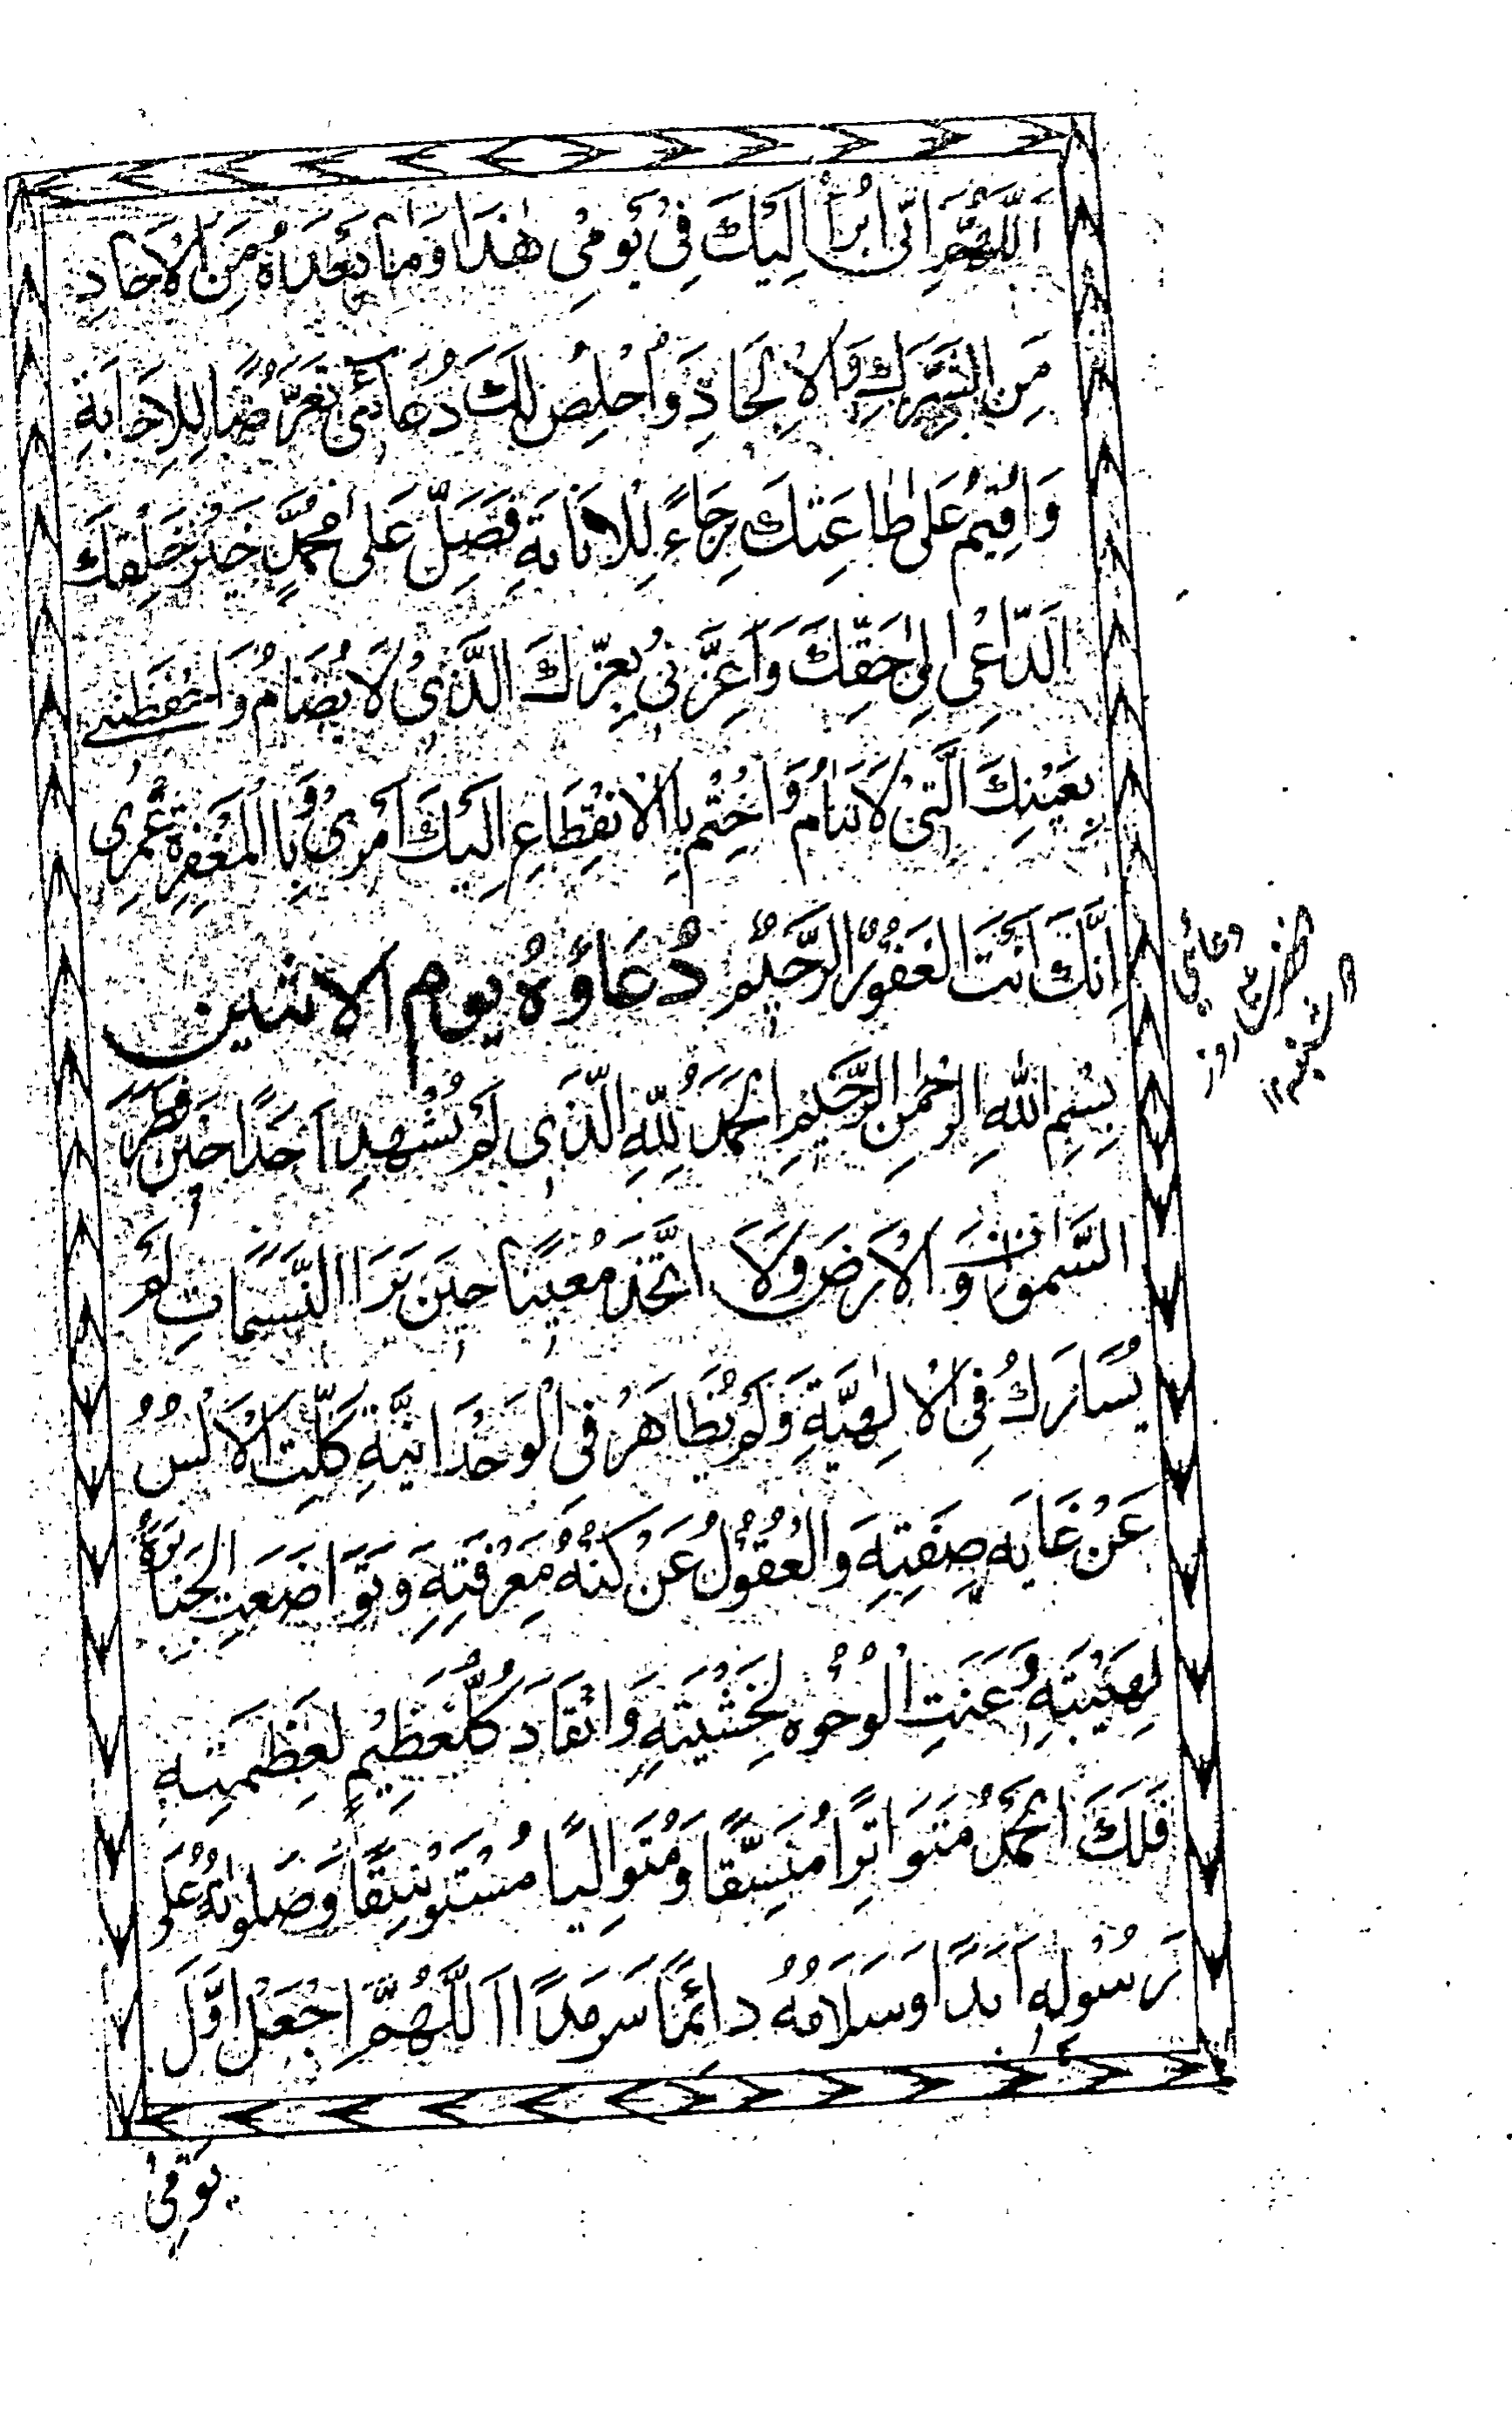 اَللّٰهُمَّ اِنّى اَبْرَأُ اِلَيْكَ فِىْ يَوْمِىْ هٰذَا وَمَا بَعْدَهُ مِنَ الْاٰحَادِ
مِنَ الشِّرْكِ وَالْاِلْحَادِ وَاُخْلِصُ لَكَ دُعَائِىْ تَعَرُّضًا لِلْاِجَابَةِ
وَاُقِيْمُ عَلىٰ طَاعَتِكَ رِجَاءً لِلْاِثَابَةِ فَصَلِّ عَلىٰ مُحَمَّدٍ خَيْرِ خَلْقِكَ
الدَّاعِىْ اِلىٰ حَقِّكَ وَاَعِزَّنِىْ بِعِزِّكَ الَّذِىْ لَا يُضَامُ وَاحْفَظْنِىْ
بِعَيْنِكَ الَّتِىْ لَا تَنَامُ وَاخْتِمْ بِالْاِنْقِطَاعِ اِلَيْكَ اَمْرِىْ وَبِالْمَغْفِرَةِ عُمْرِىْ
اِنَّكَ اَنْتَ الْغَفُوْرُ الرَّحِيْمُ دُعَاؤُهُ يوم الاثنين
بِسْمِ اللّٰهِ الرَّحْمٰنِ الرَّحِيْمِ اَلْحَمْدُ لِلّٰهِ الَّذِى لَمْ يُشْهِدْ اَحَدًا حِيْنَ فَطَرَ
السَّمٰوَاتِ وَالْاَرْضَ وَلَا اتَّخَذَ مُعِيْنًا حِيْنَ بَرَاَ النَّسَمَاتِ لَمْ
يُشَارَكْ فِى الْاِلٰهِيَّةِ وَلَمْ يُظَاهَرْ فِى الْوَحْدَانِيَّةِ كَلَّتِ الْاَلْسُنُ
عَنْ غَايَةِ صِفَتِهِ وَالْعُقُوْلُ عَنْ كُنْهِ مَعْرِفَتِهِ وَتَوَاضَعَتِ الْجَبَابِرَةُ
لِهَيْبَتِهِ وَعَنَتِ الْوُجُوْهُ لِخَشْيَتِهِ وَانْقَادَ كُلُّ عَظِيْمٍ لِعَظَمَتِهِ
فَلَكَ الْحَمْدُ مُتَوَاتِرًا مُتَّسِقًا وَمُتَوَالِيًا مُسْتَوْثِقًا وَصَلَوٰتُهُ عَلىٰ
رَسُوْلِهِ اَبَدًا وَسَلَامُهُ دَائِمًا سَرْمَدًا اَللّٰهُمَّ اجْعَلْ اَوَّلَ
يَوْمِىْ